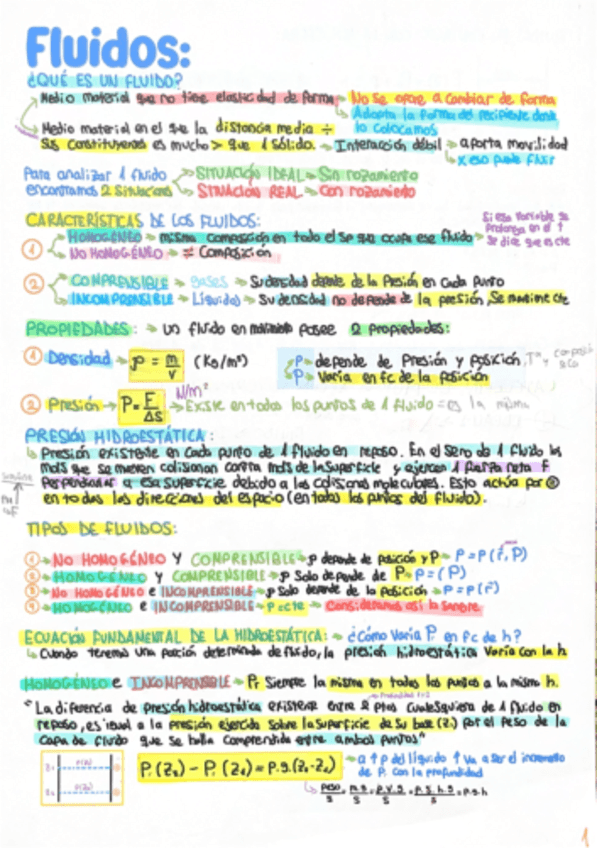 Fluidos:
¿QUÉ ES UN FLUIDO?
Medio material que no tiene elasticidad de forma → No se opone a cambiar de forma
Adopta la forma del recipiente donde
lo colocamos
Medio material en el que la distancia media ÷
sus constituyentes es mucho > que 1 sólido. → Interacción débil → aporta movilidad
x eso puede fluir
Para analizar 1 fluido
encontramos 2 situaciones
SITUACIÓN IDEAL → Sin rozamiento
SITUACIÓN REAL → Con rozamiento
CARACTERÍSTICAS DE LOS FLUIDOS:
Si esa variable se
prolonga en el t
se dice que es cte
① HOMOGÉNEO → misma composición en todo el sp que ocupa ese fluido
NO HOMOGÉNEO → ≠ Composición
② COMPRENSIBLE → gases → Su densidad depende de la Presión en cada punto
INCOMPRENSIBLE → Líquidos → Su densidad no depende de la presión, Se mantiene cte
PROPIEDADES: → un fluido en movimiento posee 2 propiedades:
① Densidad → ρ = m/V (Kg/m³)
ρ → depende de Presión y posición, Tª y
P → Varía en fc de la posición
② Presión → P = F/ΔS N/m² → Existe en todos los puntos de 1 fluido = es la misma
PRESIÓN HIDROESTÁTICA:
Presión existente en cada punto de 1 fluido en reposo. En el seno de 1 fluido las
mols que se mueven colisionan contra mols de la superficie y ejercen 1 fuerza neta F
perpendicular a esa superficie debido a las colisiones moleculares. Esto actúa por
en todas las direcciones del espacio (en todos los puntos del fluido).
TIPOS DE FLUIDOS:
① NO HOMOGÉNEO Y COMPRENSIBLE → ρ depende de posición y P → ρ = ρ(r⃗, P)
② HOMOGÉNEO Y COMPRENSIBLE → ρ Solo depende de P → ρ = ρ(P)
③ NO HOMOGÉNEO e INCOMPRENSIBLE → ρ Solo depende de la posición → ρ = ρ(r⃗)
④ HOMOGÉNEO e INCOMPRENSIBLE → ρ = cte → Consideramos así la sangre
ECUACIÓN FUNDAMENTAL DE LA HIDROESTÁTICA: → ¿Cómo varía P en fc de h?
Cuando tenemos una porción determinada de fluido, la presión hidroestática varía con la h.
HOMOGÉNEO e INCOMPRENSIBLE → Pr Siempre la misma en todos los puntos a la misma h.
"La diferencia de presión hidroestática existente entre 2 ptos cualesquiera de 1 fluido en
reposo, es igual a la presión ejercida sobre la superficie de su base (z₁) por el peso de la
capa de fluido que se halla comprendida entre ambos puntos"
→ a ↑ ρ del líquido ↑ va a ser el incremento
de P. con la profundidad